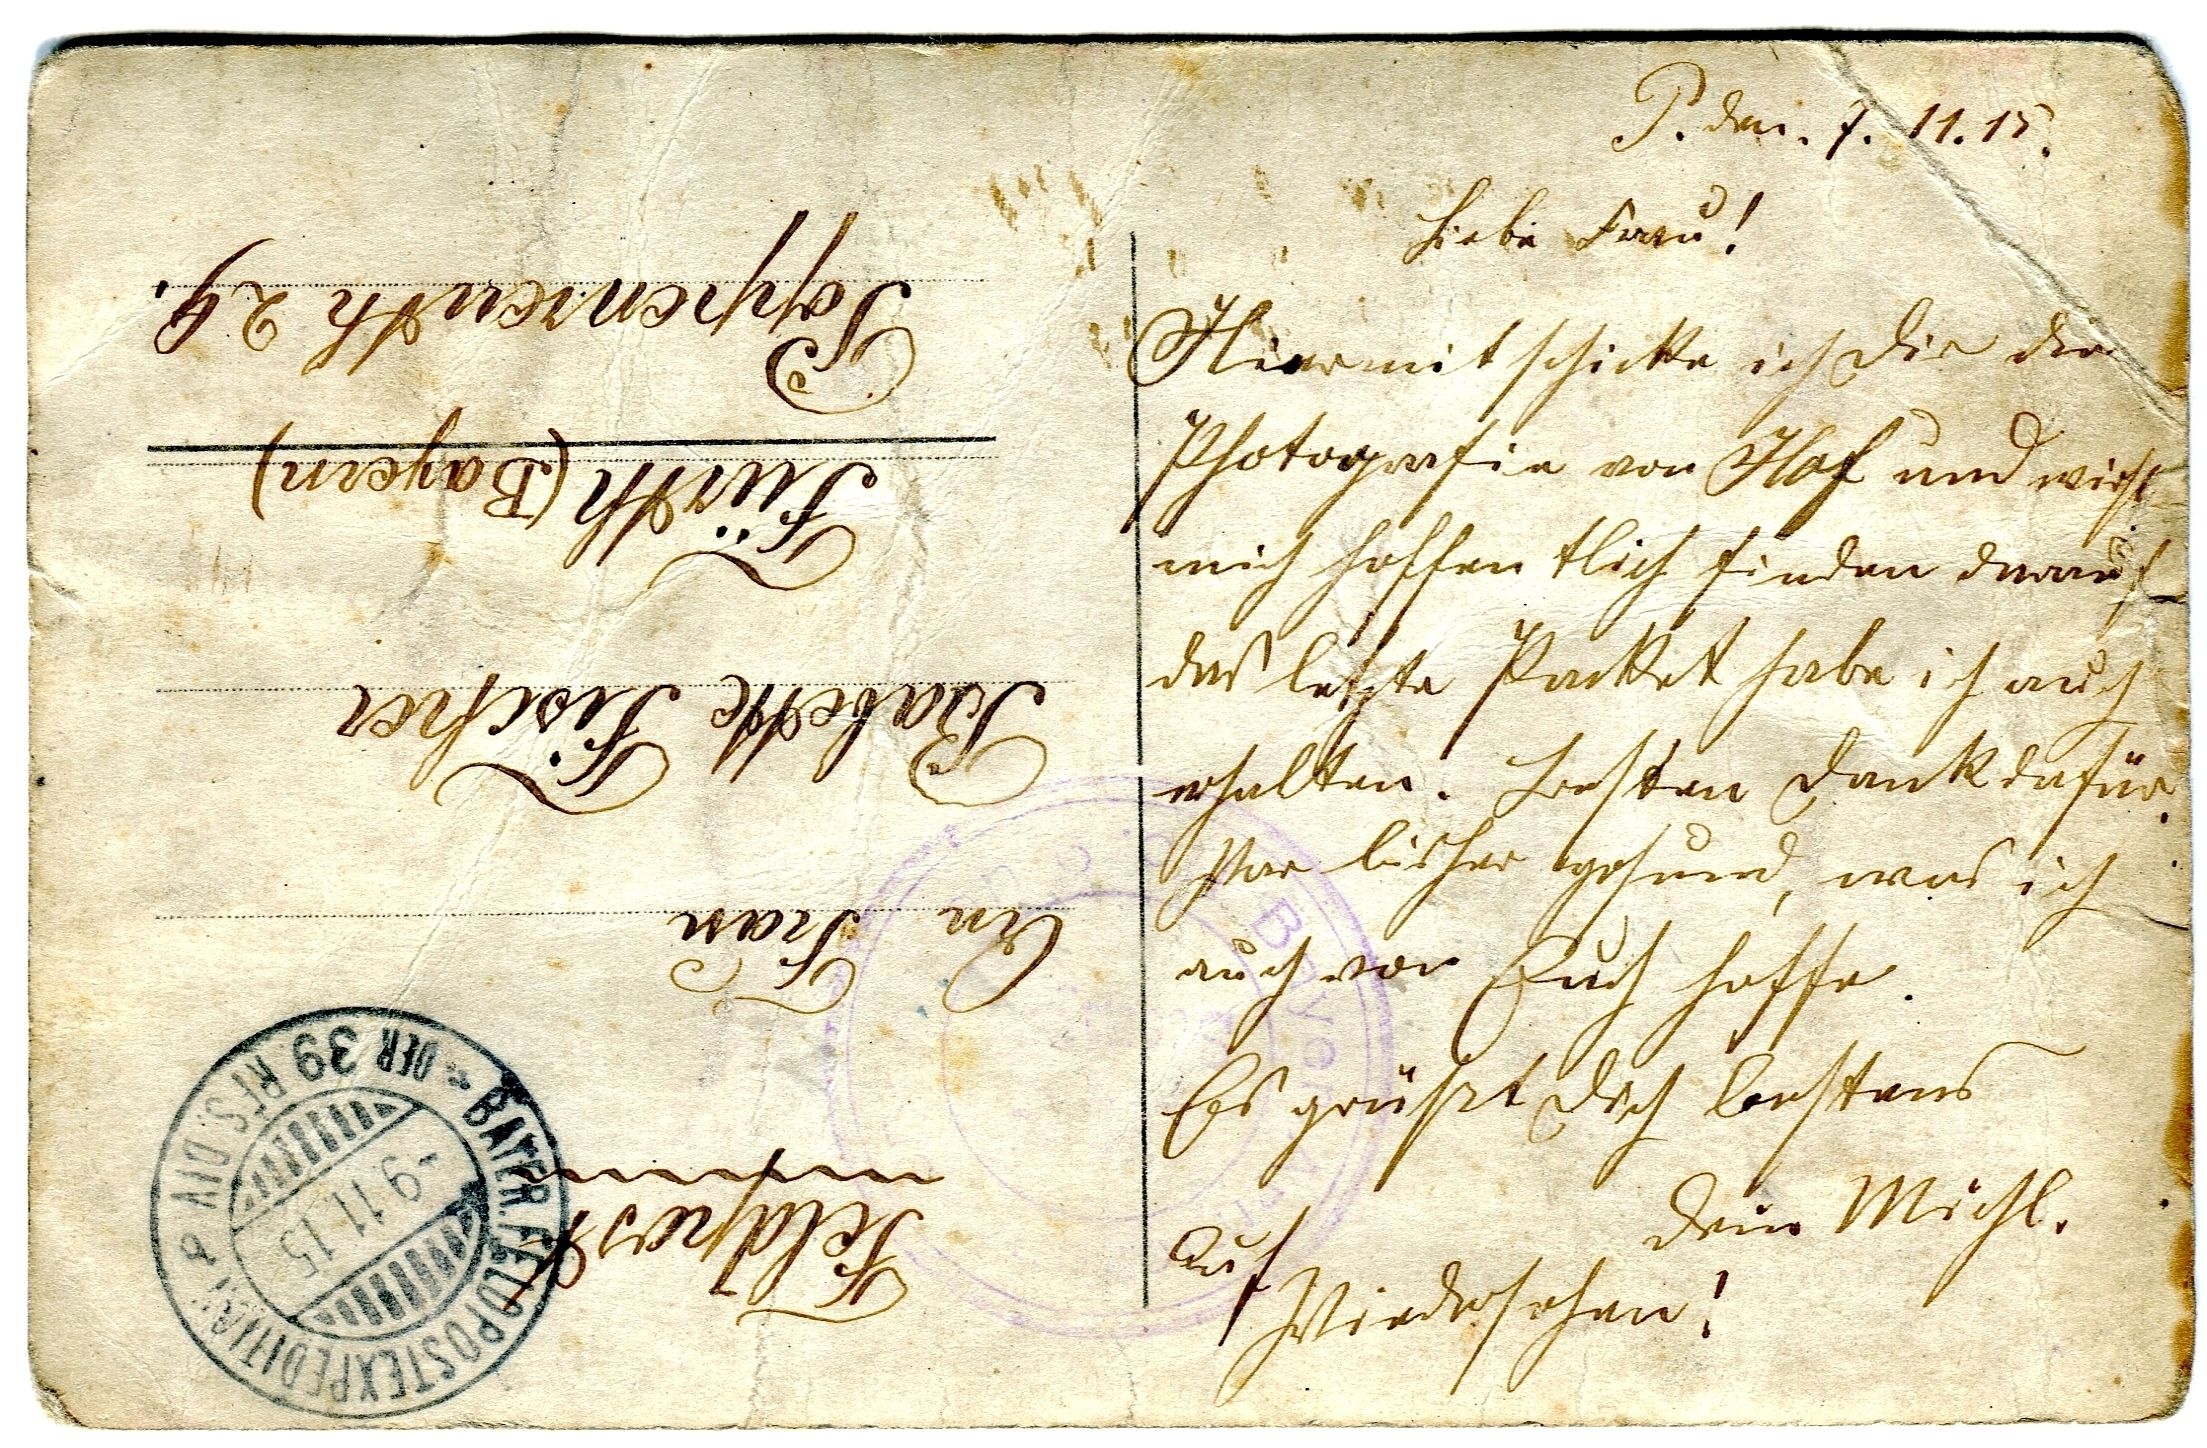 P. den. 7. 11. 15.
Liebe Frau!
Hiermit schicke ich Dir die
Photografie von Hof und wirst
mich hoffentlich finden darauf
das letzte Packet habe ich auch
erhalten. Besten Dank dafür.
War bisher gesund, was ich
auch von Euch hoffe.
Es grüßt Dich bestens
Dein Michl.
Auf
Wiedersehen!
Feldpost
An Frau
Babette Fischer
Fürth (Bayern)
Poppenreuth 29.
BAYER. FELDPOSTEXPEDITION
DER 39 RES. DIV.
-9.11.15
Bayer.